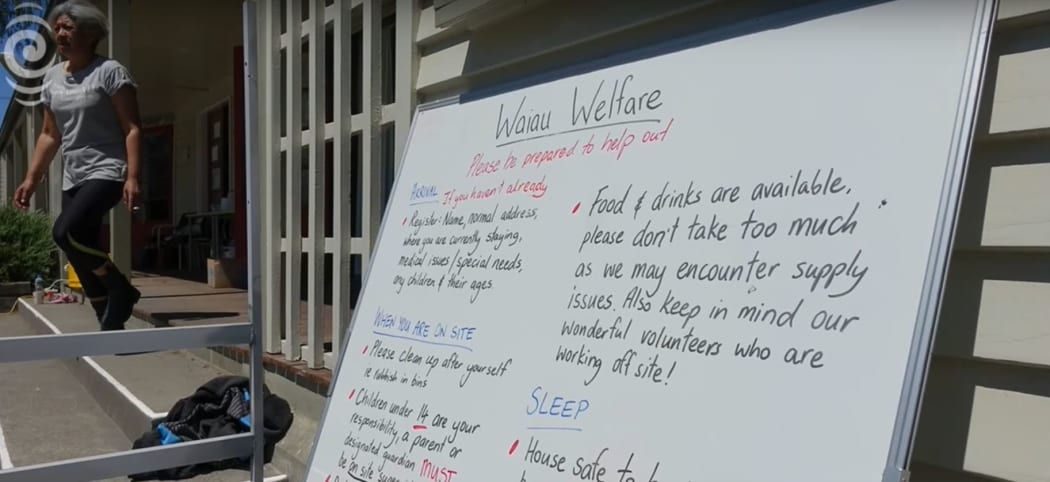 Waiau Welfare
Please be prepared to help out
If you haven't already
ARRIVAL
• Register: Name, normal address,
where you are currently staying,
medical issues/special needs,
any children & their ages.
WHEN YOU ARE ON SITE
• Please clean up after yourself
ie rubbish in bins
• Children under 14 are your
responsibility, a parent or
designated guardian MUST
be on site
• Food & drinks are available,
please don't take too much
as we may encounter supply
issues. Also keep in mind our
wonderful volunteers who are
working off site!
SLEEP
• House safe to